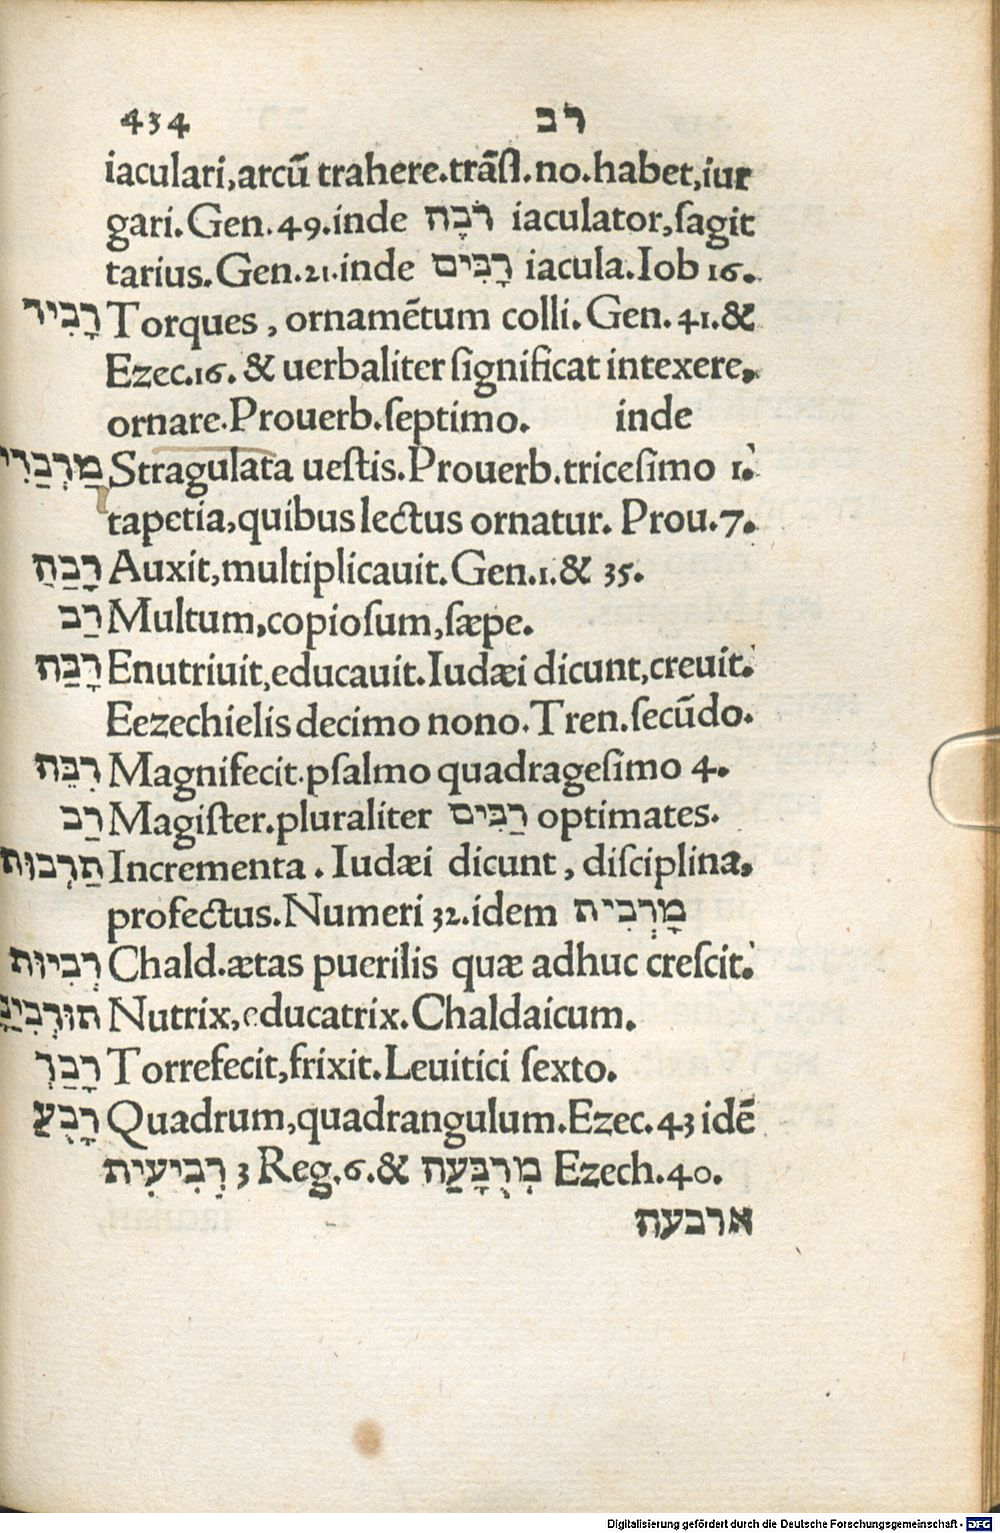 434 רב
iaculari,arcū trahere.trāſl.no.habet,iur
gari.Gen.49.inde רֹבֶה iaculator,ſagit
tarius.Gen.21.inde רָבִּים iacula.Iob 16.
רָבִיד Torques, ornamētum colli. Gen. 41.&
Ezec.16. & uerbaliter ſignificat intexere,
ornare.Prouerb.ſeptimo. inde
Stragulata ueſtis.Prouerb.triceſimo 1.
tapetia,quibus lectus ornatur. Prou.7.
רָבַה Auxit,multiplicauit.Gen.1.& 35.
רַב Multum,copioſum,ſæpe.
רָבַּה Enutriuit,educauit.Iudæi dicunt,creuit.
Eezechielis decimo nono.Tren.ſecūdo.
רִבֵּה Magnifecit.pſalmo quadrageſimo 4.
רַב Magiſter.pluraliter רַבִּים optimates.
תַרְבוּת Incrementa. Iudæi dicunt, diſciplina,
profectus.Numeri 32.idem מָרְבִית
רְבִיוּת Chald.ætas puerilis quæ adhuc creſcit.
Nutrix,educatrix.Chaldaicum.
רָבַךְ Torrefecit,frixit.Leuitici ſexto.
רָבֻעַ Quadrum,quadrangulum.Ezec.43 idē
רְבִיעִית 3 Reg.6.& מְרֻבָּעַה Ezech.40.
ארבעה
Digitalisierung gefördert durch die Deutsche Forschungsgemeinschaft - DFG